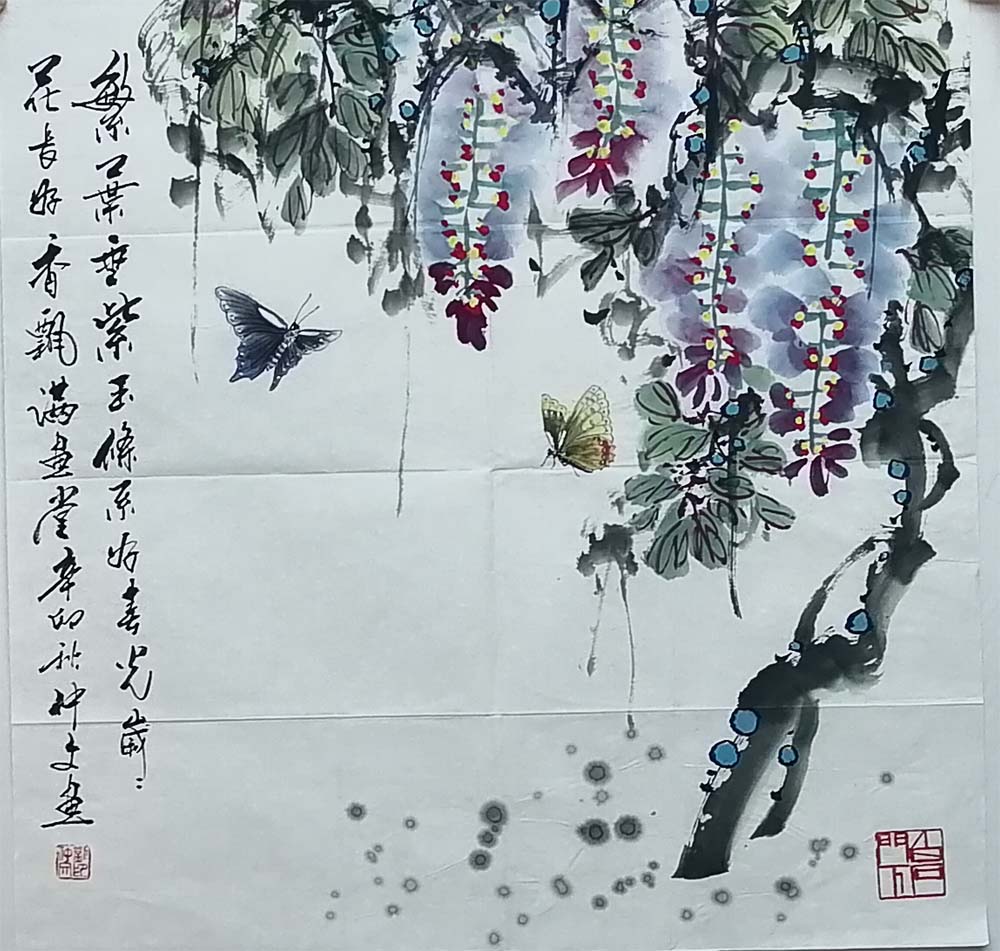 繁葉垂紫玉條系好春光歲:
花長好香飄满畫堂辛卯秋仲文畫